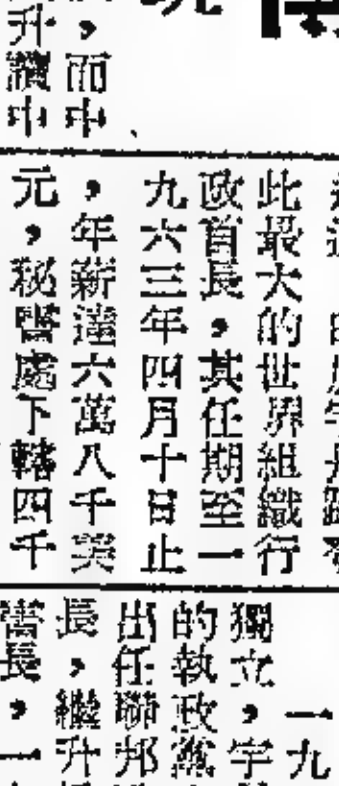 ，而中
升讀中
此最大的世界組織行
政首長，其任期至一
九六三年四月十日止
，年薪達六萬八千美
元，秘書處下轄四千
一九
獨立，宇
的執政黨
出任聯邦
長，繼升
書長，一